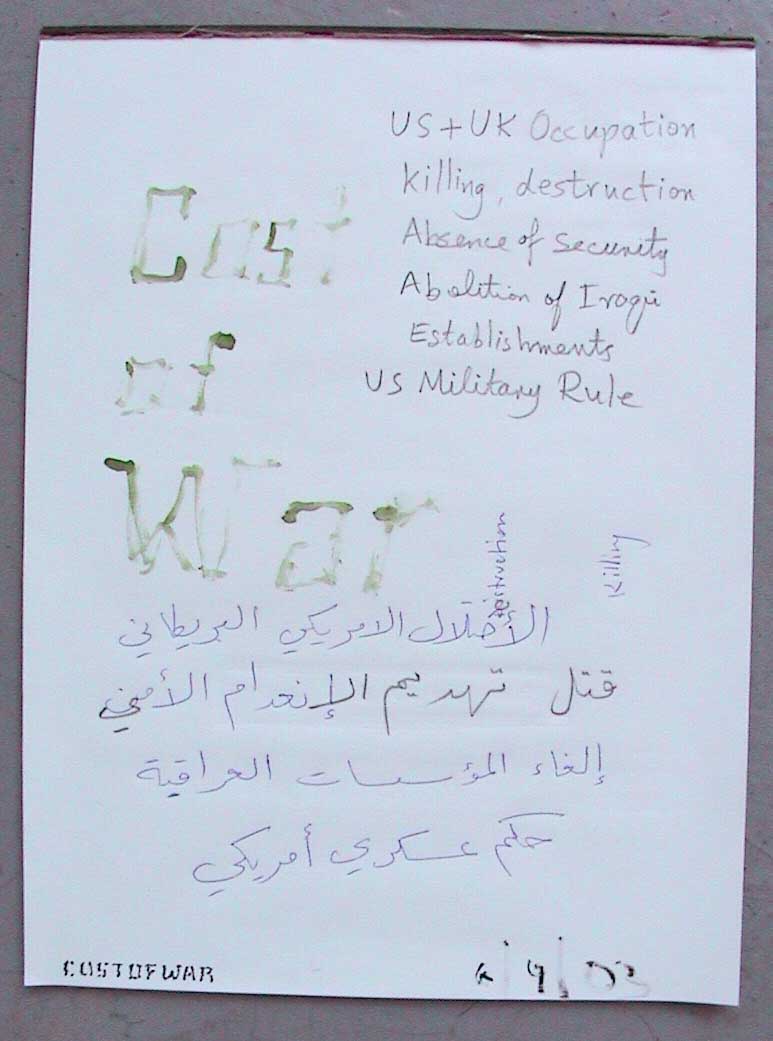 US + UK Occupation
killing, destruction
Absence of security
Abolition of Iraqi
Establishments
US Military Rule
Cost
of
War
destruction
Killing
الأحتلال الامريكي البريطاني
قتل تهديم الإنعدام الأمني
إلغاء المؤسسات العراقية
حكم عسكري أمريكي
COSTOFWAR
/9/03